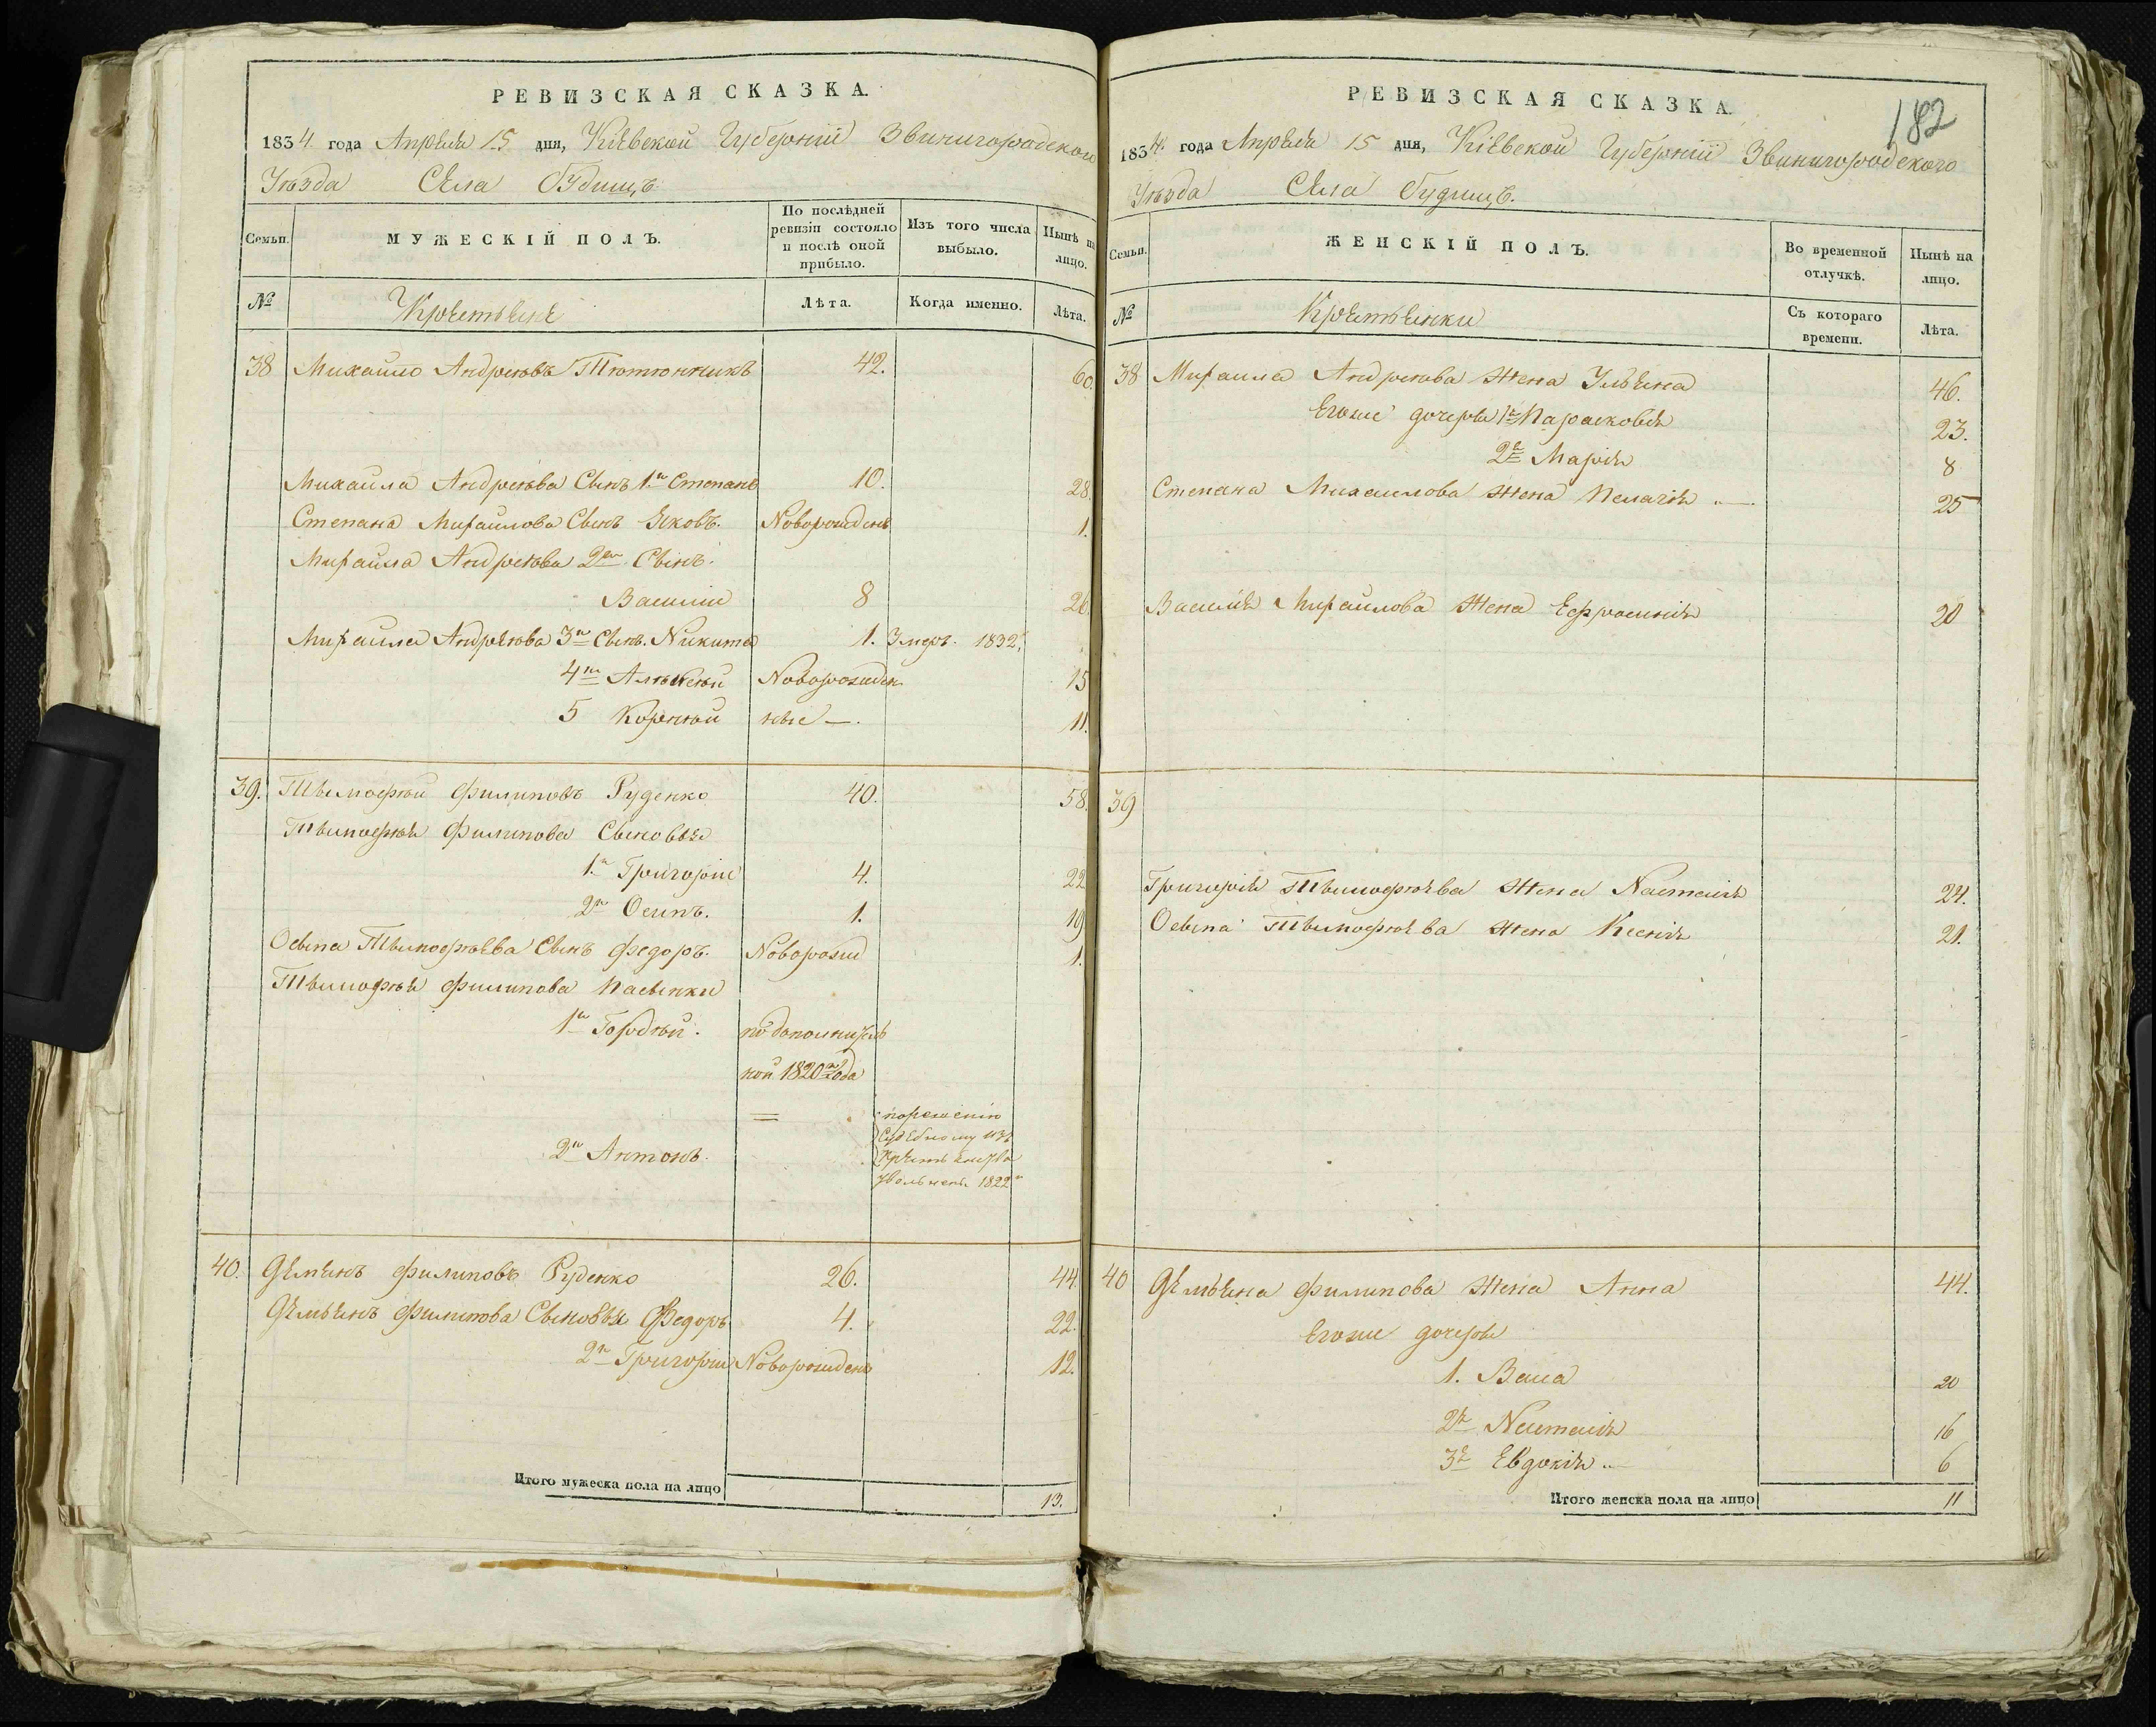 РЕВИЗСКАЯ СКАЗКА.
1834 года Апреля 15 дня, Кіевской Губерніи Звинигородского
Уѣзда Села Будищъ
Семьи.
МУЖЕСКІЙ ПОЛЪ.
По послѣдней ревизіи состояло и послѣ оной прибыло.
Изъ того числа выбыло.
Нынѣ на лицо.
№
Крестьяне
Лѣта.
Когда именно.
Лѣта.
38 Михайло Андреювъ Тютюнникъ 42. 60.
Михайла Андреюва Сынъ 1й Степанъ 10. 28.
Степана Михайлова Сынъ Яковъ. Новорожденъ 1.
Михайла Андреюва 2й Сынъ.
Василий 8 26
Михайла Андреюва 3й Сынъ. Никита 1. Умеръ. 1832.
4й Алѣксѣй Новорожден 15
5 Корнѣй ные —. 11.
39. Тымофѣй Филиповъ Руденко 40. 58.
Тымофѣя Филипова Сыновья
1й Григорій 4. 22
2й Осипъ. 1. 19
Осыпа Тымофѣева Сынъ Федоръ. Новорожд 1.
Тымофѣя Филипова Пасынки
1й Гордѣй.
ной 1820го года
=
2й Антонъ.
порешенію
Судебному изъ
Крестьянства
Уволненъ 1822
40. Демянъ Филиповъ Руденко 26. 44.
Демьянъ Филипова Сыновья Федоръ 4. 22.
2й Григорій Новорожденъ 12.
Итого мужеска пола на лицо 13.
182
РЕВИЗСКАЯ СКАЗКА.
1834. года Апреля 15 дня, Кіевской Губерніи Звинигородского
Уѣзда Села Будищъ.
Семьи.
ЖЕНСКІЙ ПОЛЪ.
Во временной отлучкѣ.
Нынѣ на лицо.
№
Крестьянки
Съ котораго времени.
Лѣта.
38 Михаила Андреюва Жена Ульяна 46.
Егоже дочеры 1я Парасковія 23.
2я Марія 8
Степана Михаилова Жена Пелагія 25
Василія Михайлова Жена Ефросинія 20
39
Григорія Тымофѣева Жена Настасія 24.
Осыпа Тымофѣева Жена Ксенія 21.
40 Демьяна Филипова Жена Анна 44.
Егоже дочеры
1. Васа 20
2я Настасія 16
3я Евдокія 6
Итого женска пола на лицо 11